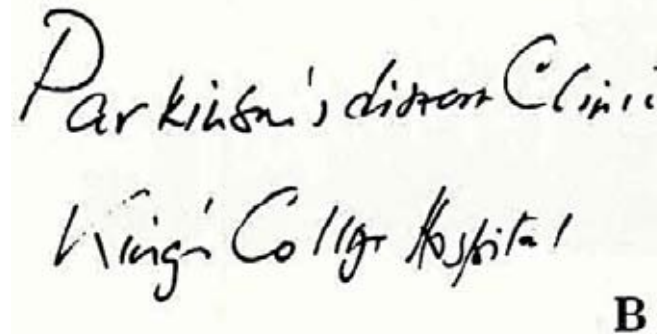 Parkinson's disease Clini
King's College Hospital
B